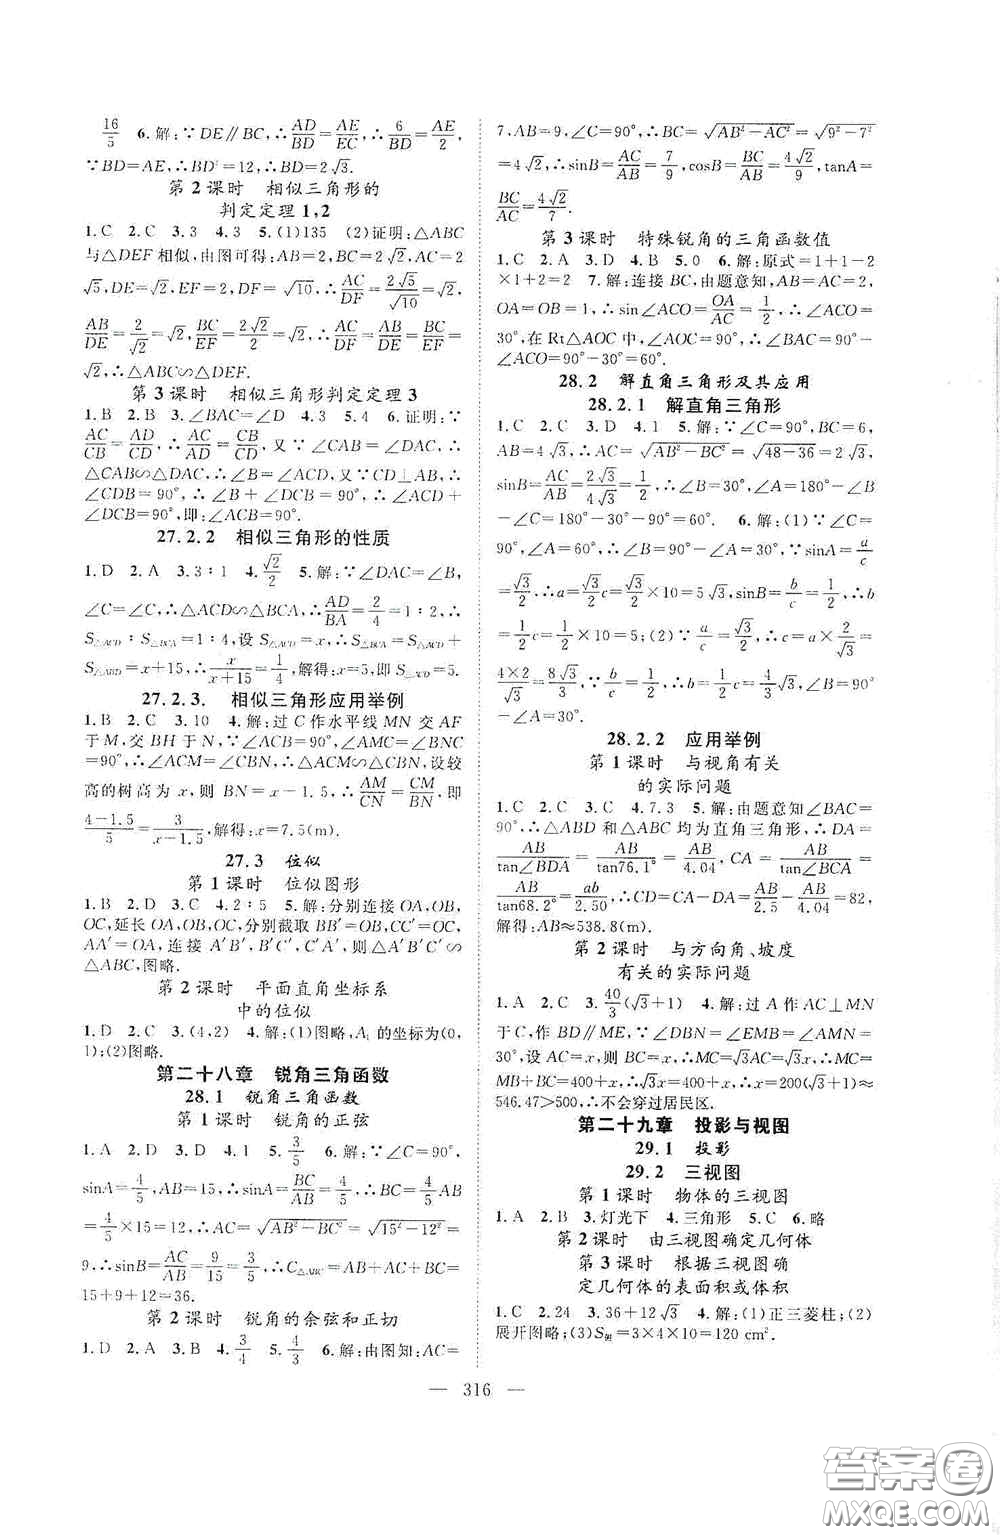 16/5 6.解:∵DE∥BC,∴AD/BD=AE/EC,∴6/BD=AE/2,
∵BD=AE,∴BD²=12,∴BD=2√3.
第2课时 相似三角形的
判定定理1,2
1.C 2.C 3.3 4.3 5.(1)135 (2)证明:△ABC
与△DEF相似,由图可得:AB=2,BC=2√2,AC=2
√5,DE=√2,EF=2,DF=√10,∴AC/DF=2√5/√10=√2,
AB/DE=2/√2=√2,BC/EF=2√2/2=√2,∴AC/DF=AB/DE=BC/EF=
√2,∴△ABC∽△DEF.
第3课时 相似三角形判定定理3
1.B 2.B 3.∠BAC=∠D 4.3 5.4 6.证明:∵
AC/CB=AD/CD,∴AC/AD=CB/CD,又∵∠CAB=∠DAC,∴
△CAB∽△DAC,∴∠B=∠ACD,又∵CD⊥AB,∴
∠CDB=90°,∴∠B+∠DCB=90°,∴∠ACD+
∠DCB=90°,即:∠ACB=90°.
27.2.2 相似三角形的性质
1.D 2.A 3.3∶1 4.√2/2 5.解:∵∠DAC=∠B,
∠C=∠C,∴△ACD∽△BCA,∴AD/BA=2/4=1∶2,∴
S△ACD∶S△BCA=1∶4,设S△ACD=x,∴S△ACD+
S△ABD=x+15,∴x/(x+15)=1/4,解得:x=5,即S△ACD=5.
27.2.3. 相似三角形应用举例
1.B 2.C 3.10 4.解:过C作水平线MN交AF
于M,交BH于N,∵∠ACB=90°,∠AMC=∠BNC
=90°,∴∠ACM=∠CBN,∴△ACM∽△CBN,设较
高的树高为x,则BN=x-1.5,∴AM/CN=CM/BN,即
(4-1.5)/5=3/(x-1.5),解得:x=7.5(m).
27.3 位似
第1课时 位似图形
1.B 2.D 3.C 4.2∶5 5.解:分别连接OA,OB,
OC,延长OA,OB,OC,分别截取BB′=OB,CC′=OC,
AA′=OA,连接A′B′,B′C′,A′C′,则△A′B′C′∽
△ABC,图略.
第2课时 平面直角坐标系
中的位似
1.D 2.C 3.(4,2) 4.解:(1)图略,A₁的坐标为(0,
1);(2)图略.
第二十八章 锐角三角函数
28.1 锐角三角函数
第1课时 锐角的正弦
1.A 2.D 3.D 4.1 5.3/5 6.解:∵∠C=90°,
sinA=4/5,AB=15,∴sinA=BC/AB=4/5,∴BC=4/5AB
=4/5×15=12,∴AC=√(AB²-BC²)=√(15²-12²)=
9,∴sinB=AC/AB=9/15=3/5,∴C△ABC=AB+AC+BC=
15+9+12=36.
第2课时 锐角的余弦和正切
1.D 2.A 3.B 4.3/4 5.4/3 6.解:由图知:AC=
7,AB=9,∠C=90°,∴BC=√(AB²-AC²)=√(9²-7²)
=4√2,∴sinB=AC/AB=7/9,cosB=BC/AB=4√2/9,tanA=
BC/AC=4√2/7.
第3课时 特殊锐角的三角函数值
1.C 2.A 3.D 4.B 5.0 6.解:原式=1+1-2
×1+2=2 7.解:连接BC,由题意知,AB=AC=2,
OA=OB=1,∴sin∠ACO=OA/AC=1/2,∴∠ACO=
30°,在Rt△AOC中,∠AOC=90°,∴∠BAC=90°-
∠ACO=90°-30°=60°.
28.2 解直角三角形及其应用
28.2.1 解直角三角形
1.C 2.C 3.D 4.1 5.解:∵∠C=90°,BC=6,
AB=4√3,∴AC=√(AB²-BC²)=√(48-36)=2√3,
sinB=AC/AB=2√3/4√3=1/2,∴∠B=30°,∠A=180°-∠B
-∠C=180°-30°-90°=60°. 6.解:(1)∵∠C=
90°,∠A=60°,∴∠B=90°-∠A=30°,∵sinA=a/c
=√3/2,∴a=√3/2c=√3/2×10=5√3,sinB=b/c=1/2,∴b
=1/2c=1/2×10=5;(2)∵a/c=√3/2,∴c=a×2/√3=
4×2/√3=8√3/3,∵b/c=1/2,∴b=1/2c=4√3/3,∠B=90°
-∠A=30°.
28.2.2 应用举例
第1课时 与视角有关
的实际问题
1.C 2.C 3.C 4.7.3 5.解:由题意知∠BAC=
90°,∴△ABD和△ABC均为直角三角形,∴DA=
AB/tan∠BDA=AB/tan76.1°=AB/4.04,CA=AB/tan∠BCA=
AB/tan68.2°=ab/2.50,∴CD=CA-DA=AB/2.5-AB/4.04=82,
解得:AB≈538.8(m).
第2课时 与方向角、坡度
有关的实际问题
1.A 2.C 3.40/3(√3+1) 4.解:过A作AC⊥MN
于C,作BD∥ME,∵∠DBN=∠EMB=∠AMN=
30°,设AC=x,则BC=AC=x,∴MC=√3AC=√3x,∴MC=
MB+BC=400+x=√3x,∴x=200(√3+1)≈
546.47>500,∴不会穿过居民区.
第二十九章 投影与视图
29.1 投影
29.2 三视图
第1课时 物体的三视图
1.A 2.B 3.灯光下 4.三角形 5.C 6.略
第2课时 由三视图确定几何体
第3课时 根据三视图确
定几何体的表面积或体积
1.C 2.24 3.36+12√3 4.解:(1)正三菱柱;(2)
展开图略;(3)S侧=3×4×10=120 cm².
— 316 —
答案圈
MXQE.COM